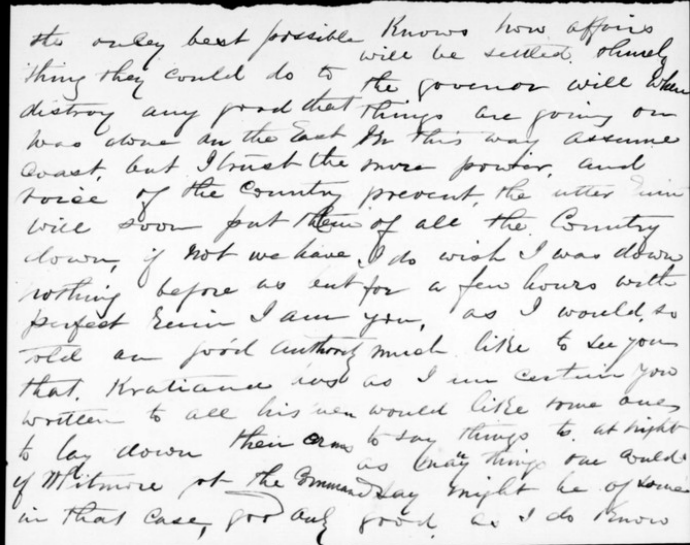 the onley best possible
thing they could do to
distroy any good that
was done on the East
Coast, but I trust the
voice of the Country
will soon put them
down, if not we have
nothing before us but
perfect Ruin I am
told on good authority
that. has
written to all his men
to lay down their arms
if Whitmore at the Command
in that case, god only
Knows how affairs
will be settled,
the govenor will when
things are going on
in this way assume
more power, and
prevent, the utter ruin
of all the Country
I do wish I was down
for a few hours with
you, as I would, so
much like to see you
as I am certain you
would like some one
to say things to. at night
as many things one could
say might be of some
good. as I do Know